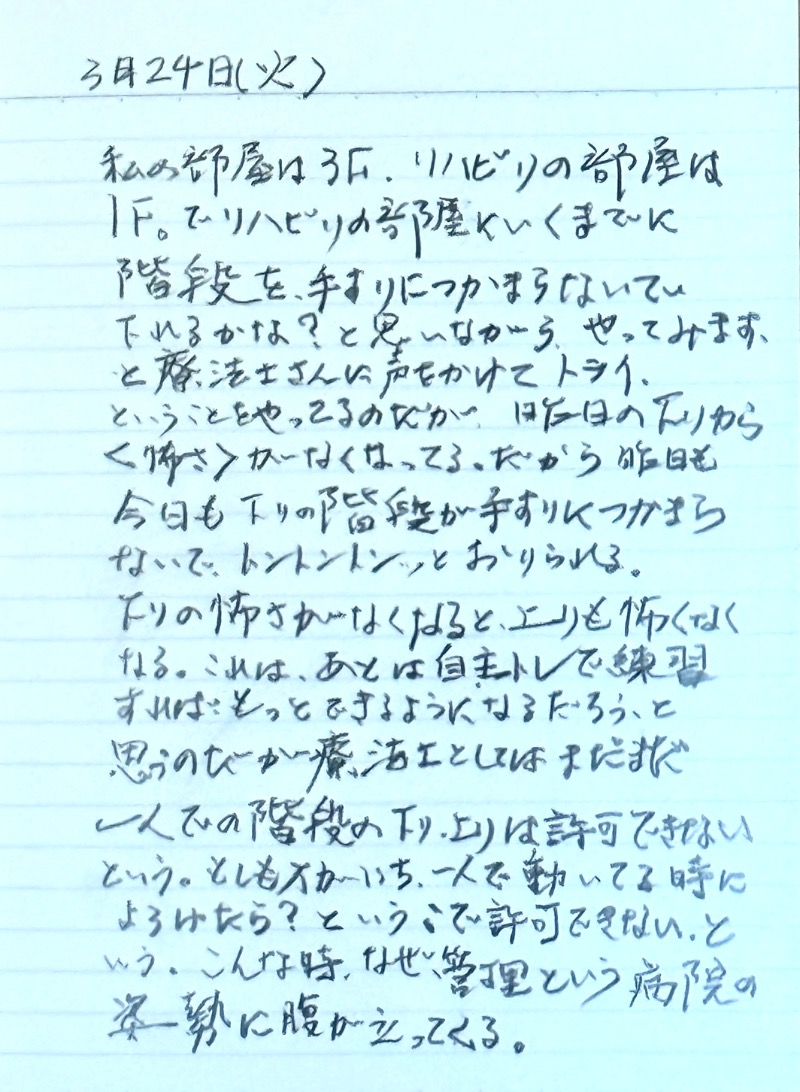 3月24日(火)
私の部屋は3F. リハビリの部屋は
1F。でリハビリの部屋にいくまでに
階段を、手すりにつかまらないでい
下れるかな?と思いながら、やってみます、
と療法士さんに声をかけてトライ.
ということをやってるのだが、昨日の下りから
<怖さ>がなくなってる。だから昨日も
今日も下りの階段が手すりにつかまら
ないで、トントントンッとおりられる。
下りの怖さがなくなると、上りも怖くなく
なる。これは、あとは自主トレで練習
すればもっとできるようになるだろう、と
思うのだが療法士としてはまだまだ
一人での階段の下り、上りは許可できない
という。としも万がいち、一人で動いてる時に
よろけたら?というで許可できない、と
いう。こんな時、なぜ、管理という病院の
姿勢に腹が立ってくる。